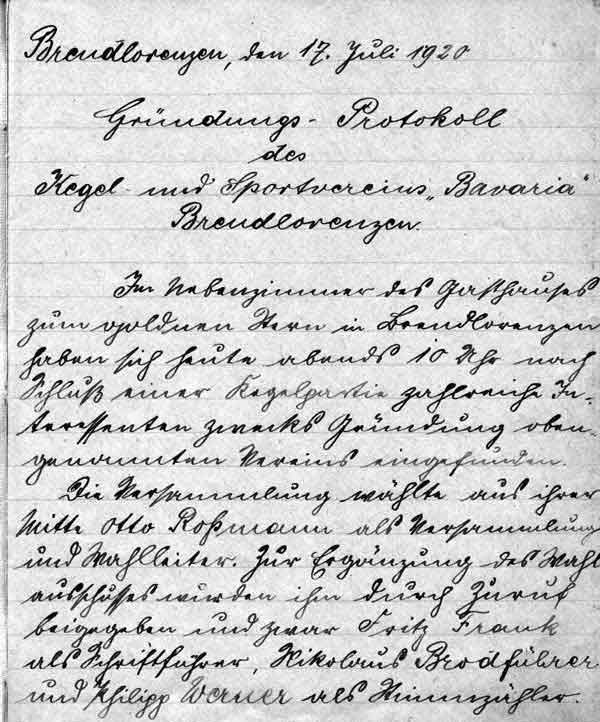 Brendlorenzen, den 17. Juli 1920
Gründungs-Protokoll
des
Kegel- und Sportvereins „Bavaria“
Brendlorenzen.
Im Nebenzimmer des Gasthauses
zum goldnen Stern in Brendlorenzen
haben sich heute abends 10 Uhr nach
Schluß einer Kegelpartie zahlreiche In-
teressenten zwecks Gründung oben-
genannten Vereins eingefunden.
Die Versammlung wählte aus ihrer
Mitte Otto Roßmann als Versammlungs
und Wahlleiter. Zur Ergänzung des Wahl
ausschusses wurden ihm durch Zuruf
beigegeben und zwar Fritz Frank
als Schriftführer, Nikolaus Brodführer
und Philipp Werner als Stimmzähler.